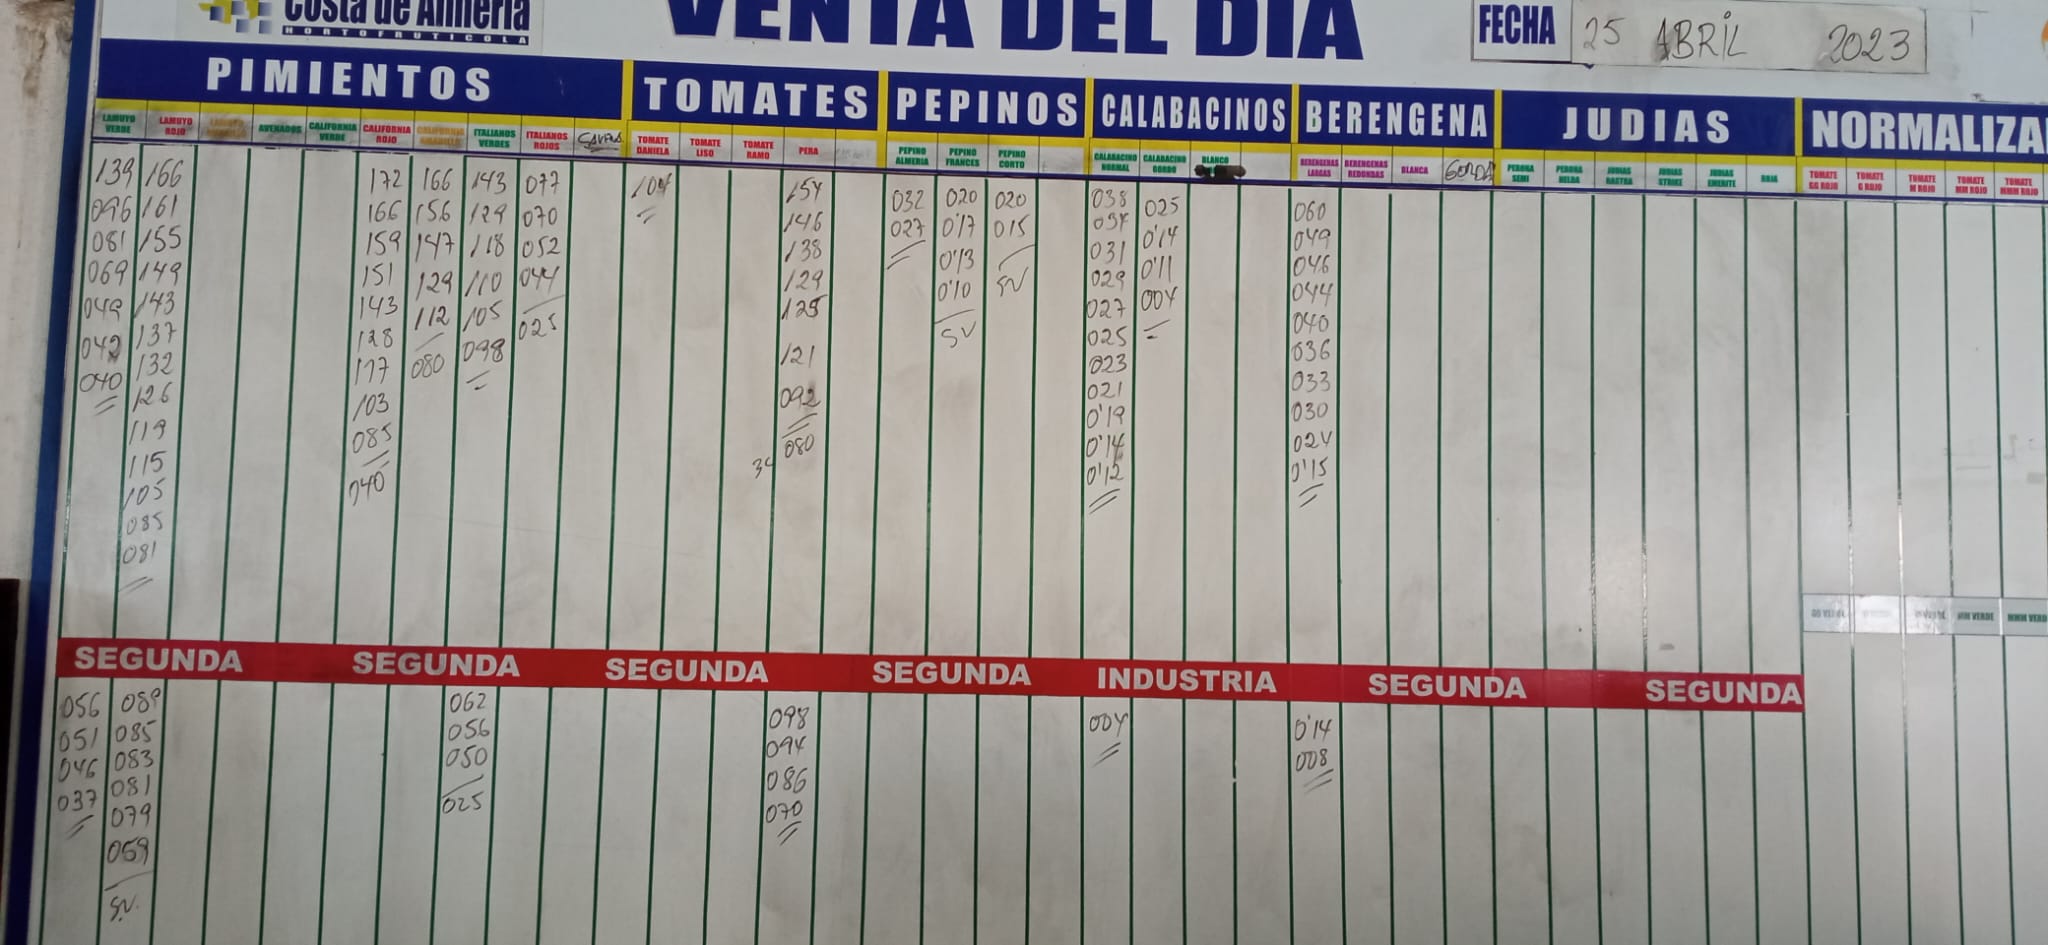 Costa de Almería
HORTOFRUTICOLA
VENTA DEL DIA
FECHA 25 ABRIL 2023
PIMIENTOS TOMATES PEPINOS CALABACINOS BERENGENA JUDIAS NORMALIZA
LAMUYO VERDE LAMUYO ROJO AVENADOS CALIFORNIA VERDE CALIFORNIA ROJO CALIFORNIA AMARILLO ITALIANOS VERDES ITALIANOS ROJOS TOMATE DANIELA TOMATE LISO TOMATE RAMO PERA PEPINO ALMERIA PEPINO FRANCES PEPINO CORTO CALABACINO NORMAL CALABACINO GORDO BLANCO BERENGENAS LARGAS BERENGENAS REDONDAS BLANCA GORDA PERONA SEMI PERONA HELDA JUDIAS RASTRA JUDIAS STRIKE JUDIAS EMERITE ROJA TOMATE GG ROJO TOMATE G ROJO TOMATE M ROJO TOMATE MM ROJO TOMATE MMM ROJO
139 166 172 166 143 077 104 154 032 020 020 038 025 060
096 161 166 156 129 070 146 027 0'17 015 034 0'14 049
081 155 159 147 118 052 138 0'13 SV 031 0'11 046
069 149 151 129 110 044 129 0'10 029 004 044
049 143 143 112 105 025 125 SV 027 040
042 137 128 080 098 121 025 036
040 132 117 092 023 033
126 103 080 021 030
119 085 34 0'19 024
115 040 0'14 0'15
105 0'12
085
081
MM VERDE
SEGUNDA SEGUNDA SEGUNDA SEGUNDA INDUSTRIA SEGUNDA SEGUNDA
056 089 062 098 004 0'14
051 085 056 094 008
046 083 050 086
037 081 025 070
079
059
S.V.